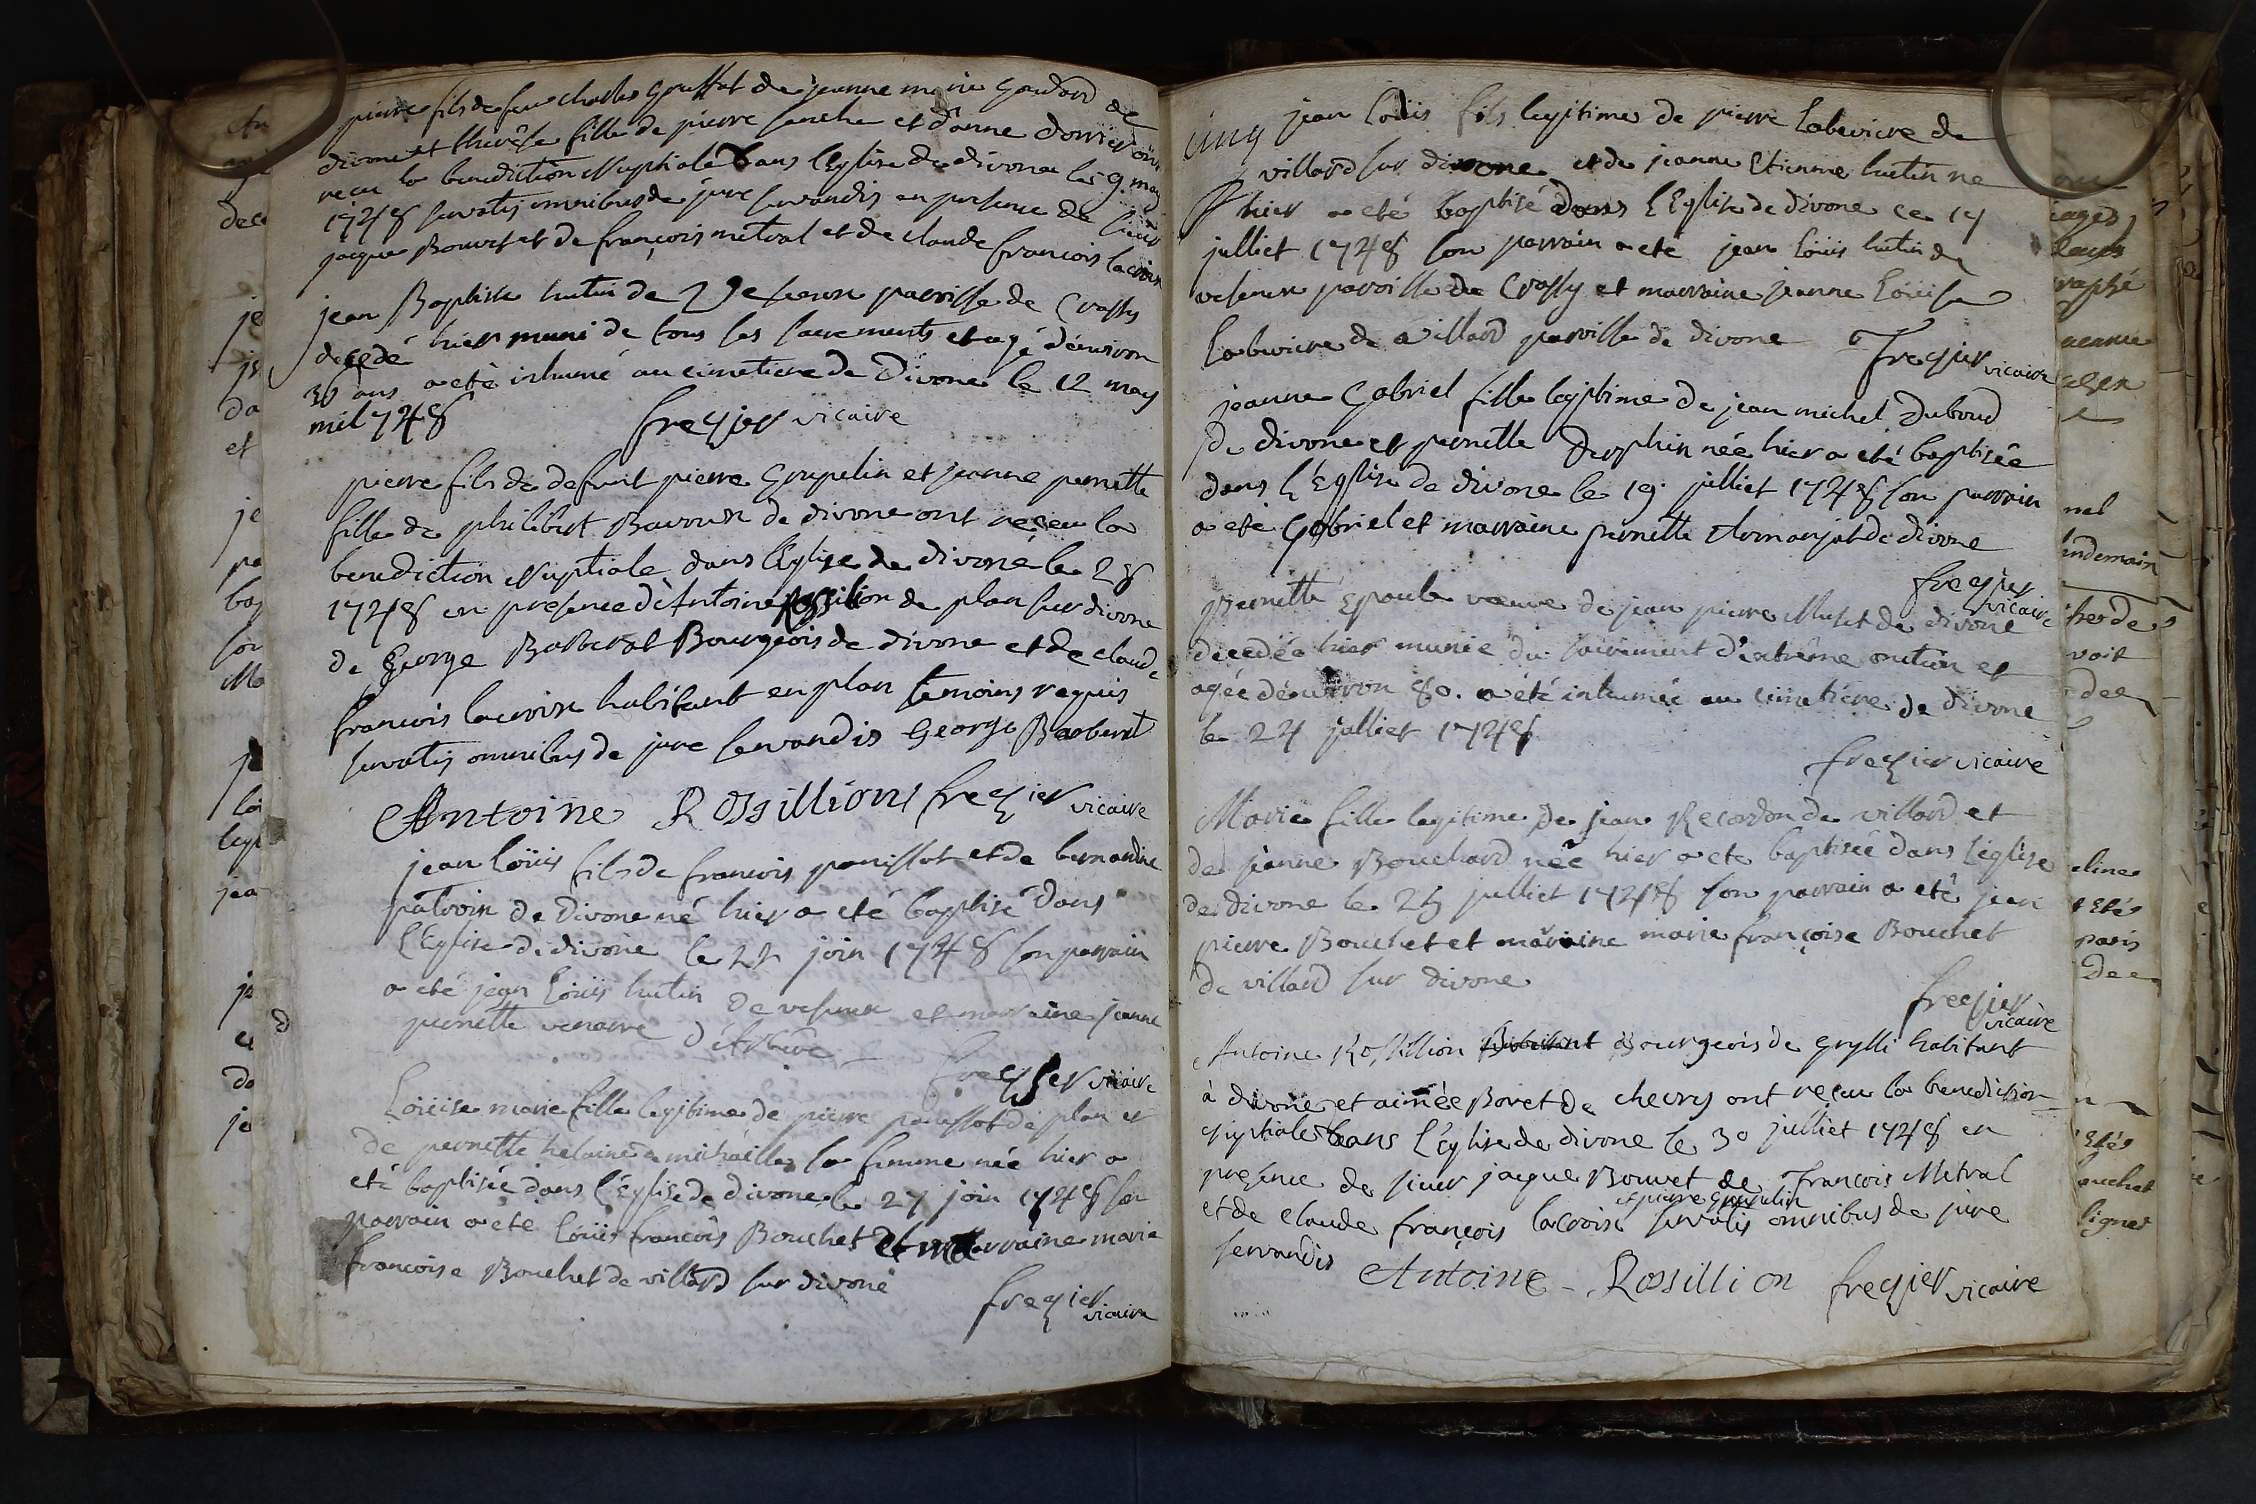 pierre fils de feu charles Gruffat de jeanne marie Gaudard de
divone et therèse fille de pierre et d'anne dorrier ont
reçeu la benediction Nuptiale dans l'Eglise de divone le 9. may
1748 servatis omnibus de jure servandis en presence de sieur
jacque Bouvet et de françois metral et de claude françois lacroix
jean Baptiste hutin de Vesenex parroisse de Crassy
decedé hier muni de tous les sacrements et agé d'environ
36 ans a eté inhumé au cimetiere de Divone le 12 may
mil 748
fregier vicaire
pierre fils de defunt pierre Grupelin et jeanne pernette
fille de philibert de divone ont reçeu la
benediction Nuptiale dans l'Eglise de divone le 28
1748 en presence d'Antoine Rossilion de plan sur divone
de George Barberat Bourgeois de divone et de claude
francois lacroix habitant en plan temoins requis
servatis omnibus de jure servandis George Barberat
Antoine Rossillion fregier vicaire
jean loüis fils de francois panissot et de bernardine
patroin de Divone né hier a eté baptisé dans
l'Eglise de divone le 22 join 1748 son parrain
a eté jean loüis hutin de vesenex et marraine jeanne
pernette d'Arbere
fregier vicaire
Loüise marie fille legitime de pierre panissot de plan et
de pernette helaine michaille sa femme née hier a
eté baptisée dans l'Eglise de divone le 27 join 1748 son
parrain a eté loüis francois Bouchet et marraine marie
francoise Bouchet de villard sur divone
fregier vicaire
cinq
jean loüis fils legitime de pierre labeviere de
villard sur divone et de jeanne Etienne hutin ne
hier a eté baptisé dans l'Eglise de divone ce 17
julliet 1748 son parrain a eté jean loüis hutin de
vesenex paroisse de Crassy et marraine jeanne loüise
labeviere de villard parroisse de divone
fregier vicaire
jeanne Gabriel fille legitime de jean michel Duboud
de divone et pernette Dauphin née hier a eté baptisée
dans l'Eglise de divone le 19. julliet 1748 son parrain
a eté Gabriel et marraine pernette Armanjat de divone
fregier vicaire
pernette Epoule veuve de jean pierre Musit de divone
decedée hier munie du sacrement d'extrême onction et
agée d'environ 80. a été inhumée au cimetiere de divone
le 24 julliet 1748
fregier vicaire
Marie fille legitime de jean Recordon de villard et
de jeanne Bouchard née hier a ete baptisée dans l'église
de divone le 25 julliet 1748 son parrain a eté jean
pierre Bouchet et marraine marie françoise Bouchet
de villard sur divone
fregier vicaire
Antoine Rossillion Bourgeois de Grylli habitant
à divone et aimée Boret de chevry ont reçeu la benediction
Nuptiale dans l'église de divone le 30 julliet 1748 en
presence de sieur jacque Bouvet de François Metral
et pierre Grupelin
et de Claude françois lacroix servatis omnibus de jure
servandis
Antoine - Rossillion fregier vicaire